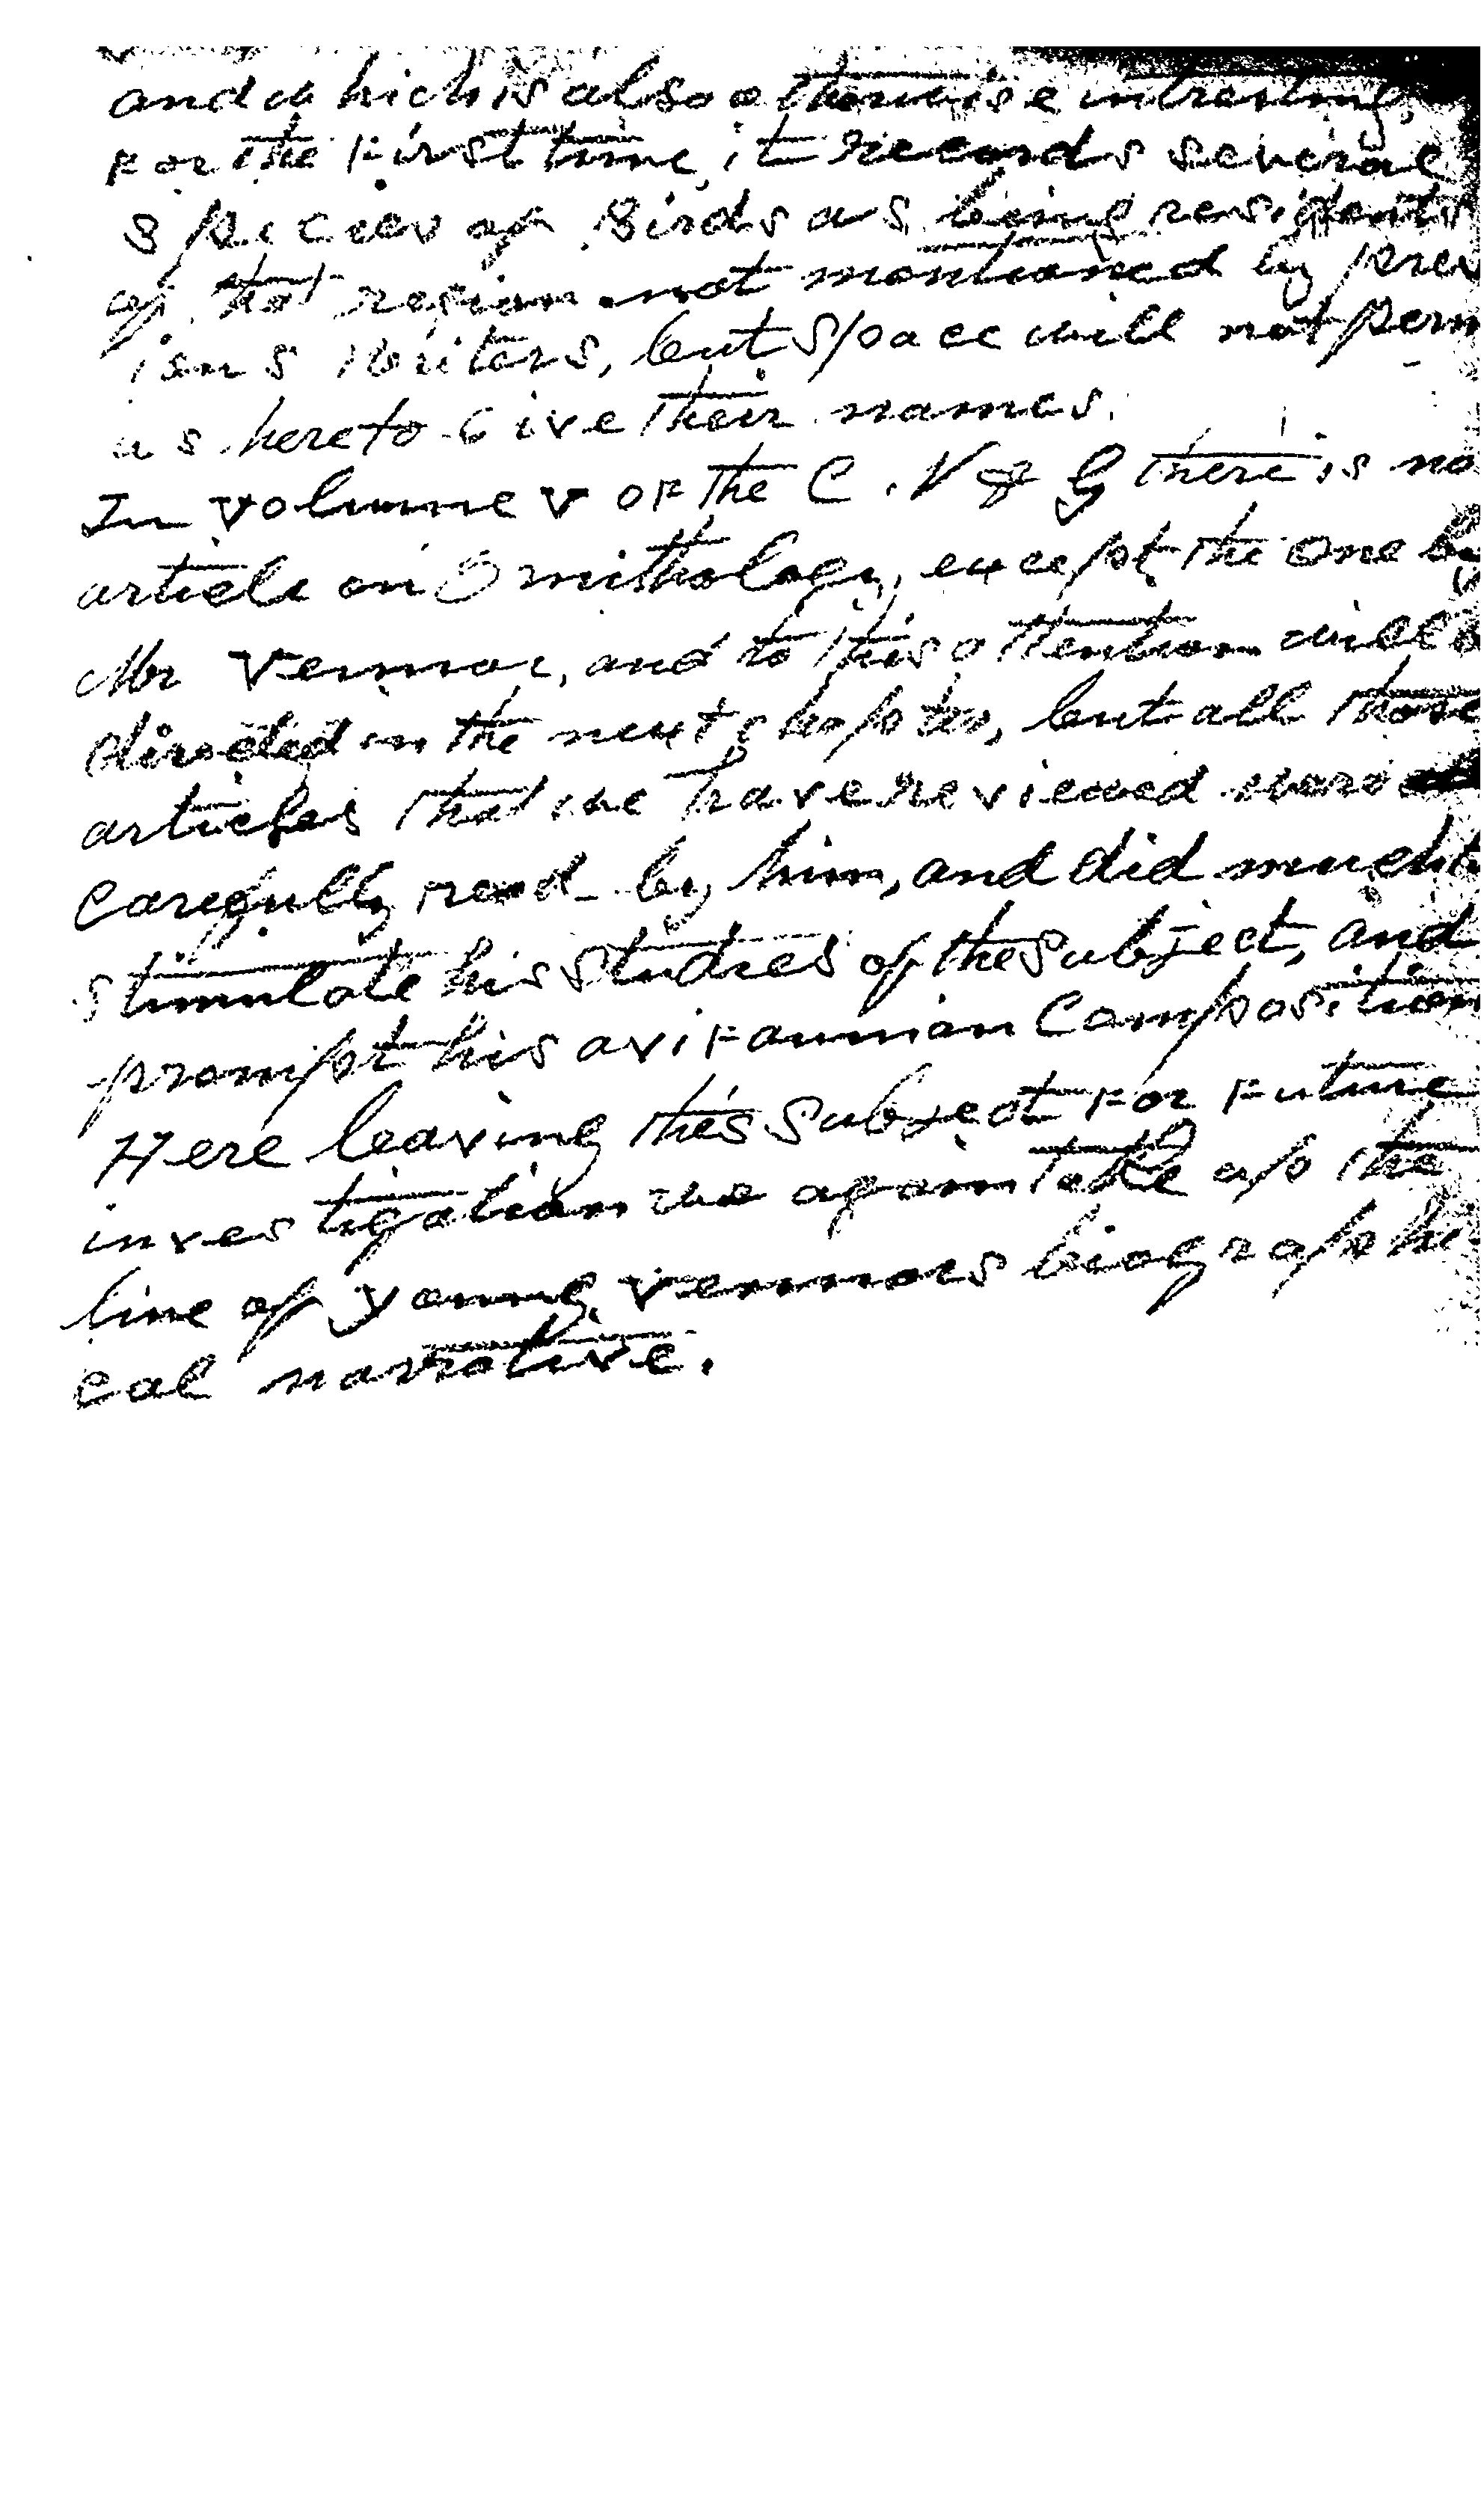 and which is also otherwise intresting,
For the First time, it records several
species of Birds as being residents
of that region not mentioned by prev
ious writers, but space will not perm
us here to Give their names.
In volume V OF The C. N & G there is no
article on Ornithology, except the one by
Mr Vennor, and to this attention will b
directed in the next chapter, but all those
articles that we have reviewed were
carefully read by him, and did much t
stimulate his studies of the subject, and
prompt his aviFaunian Composition
Here leaving this subject For Future
investigation we again Take up the
line of young Vennors biographi
cal narrative.